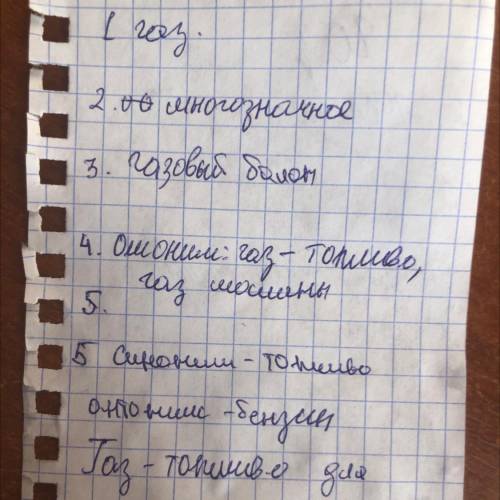 1 газ.
2. многозначное
3. Газовый балон
4. Омоним: газ - топливо,
газ машины
5.
5 синоним - топливо
антоним - бензин
Газ - топливо для